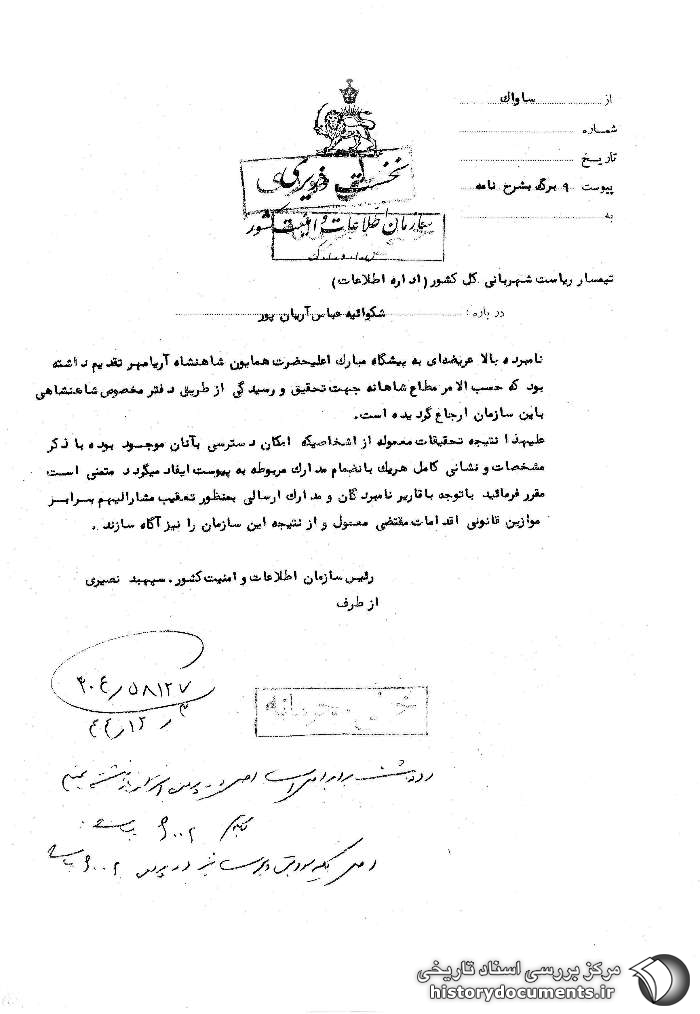 از ساواك
شماره
تاریخ
پیوست ۹ برگ بشرح نامه
به
نخست وزیری
سازمان اطلاعات و امنیت کشور
تیمسار ریاست شهربانی کل کشور (اداره اطلاعات)
درباره: شکوائیه عباس آریان پور
نامبرده بالا عریضه‌ای به پیشگاه مبارك اعلیحضرت همایون شاهنشاه آریامهر تقدیم داشته
بود که حسب الامر مطاع شاهانه جهت تحقیق و رسیدگی از طریق دفتر مخصوص شاهنشاهی
باین سازمان ارجاع گردیده است.
علیهذا نتیجه تحقیقات معموله از اشخاصیکه امکان دسترسی بآنان موجود بوده با ذکر
مشخصات و نشانی کامل هریك بانضمام مدارك مربوطه به پیوست ایفاد میگردد متمنی است
مقرر فرمائید باتوجه باقاریر نامبردگان و مدارك ارسالی بمنظور تعقیب مشارالیهم برابر
موازین قانونی اقدامات مقتضی معمول و از نتیجه این سازمان را نیز آگاه سازند.
رئیس سازمان اطلاعات و امنیت کشور. سپهبد نصیری
از طرف
۳۰۴/۵۸۱۲۷
۴۴/۱۲/۳
خیلی محرمانه
مرکز بررسی اسناد تاریخی
historydocuments.ir